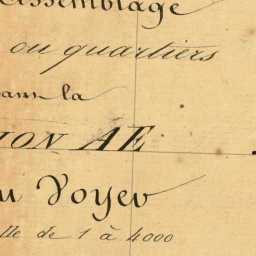 Assemblage
ou quartiers
dans la
ION AE
u Voyer
lle de 1 à 4000